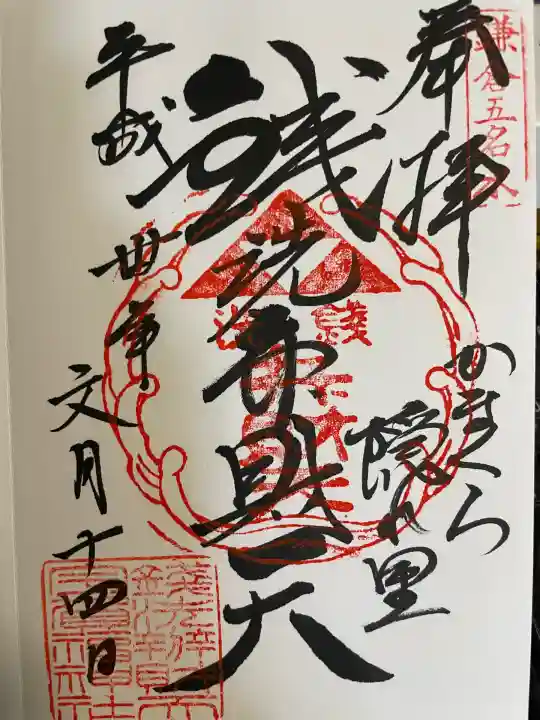 鎌倉五名水
奉拝
かまくら
隠れ里
銭洗弁財天
平成卅年
文月十四日